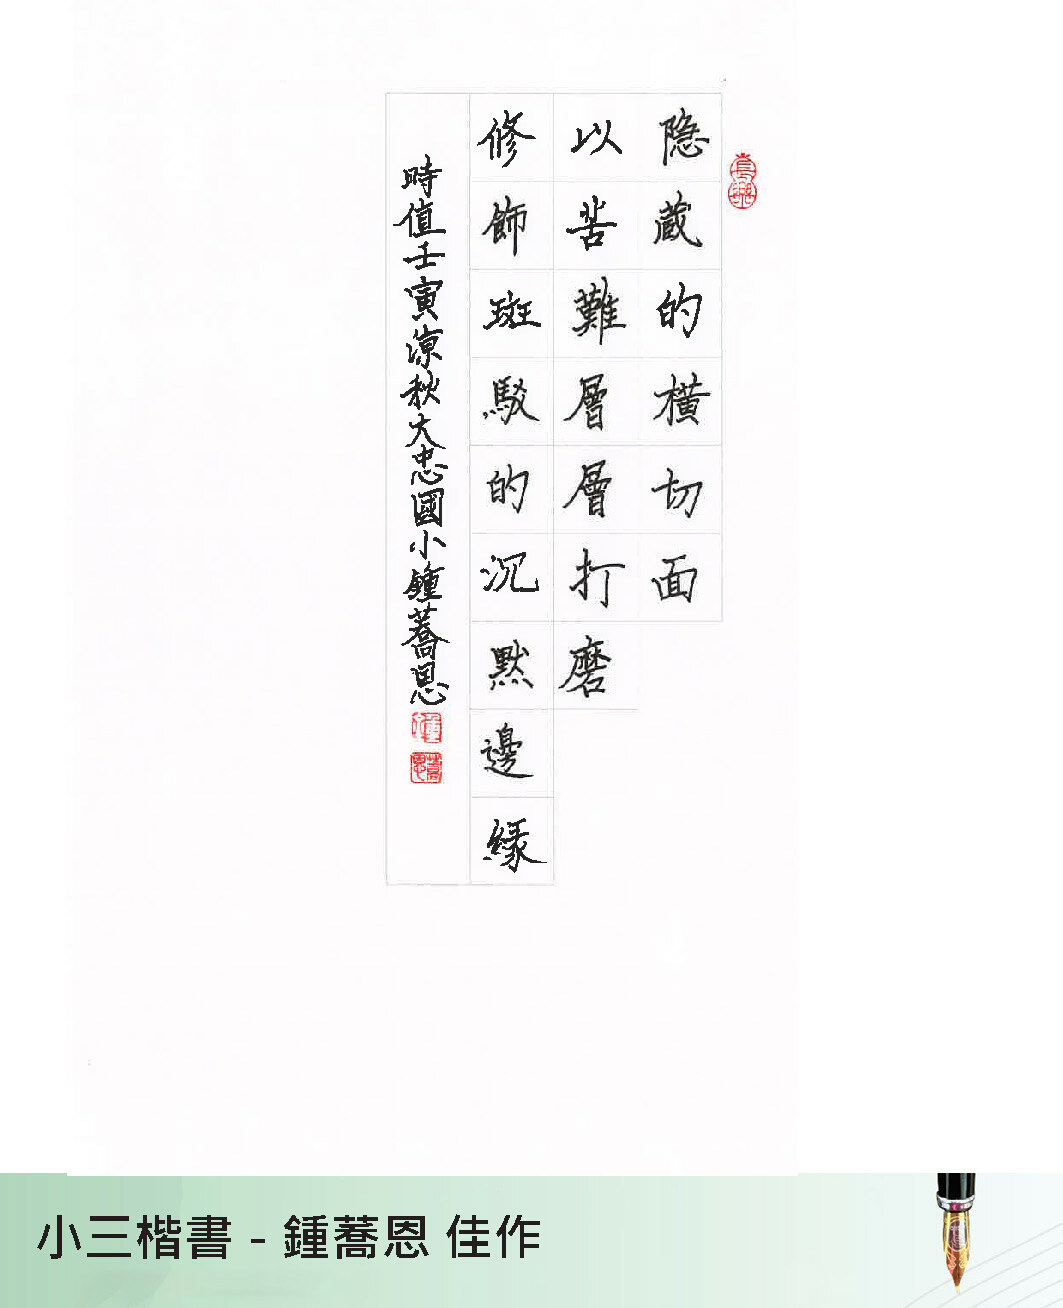 隱藏的橫切面
以苦難層層打磨
修飾斑駁的沉默邊緣
時值壬寅凉秋大忠國小鍾蕎恩
小三楷書 - 鍾蕎恩 佳作